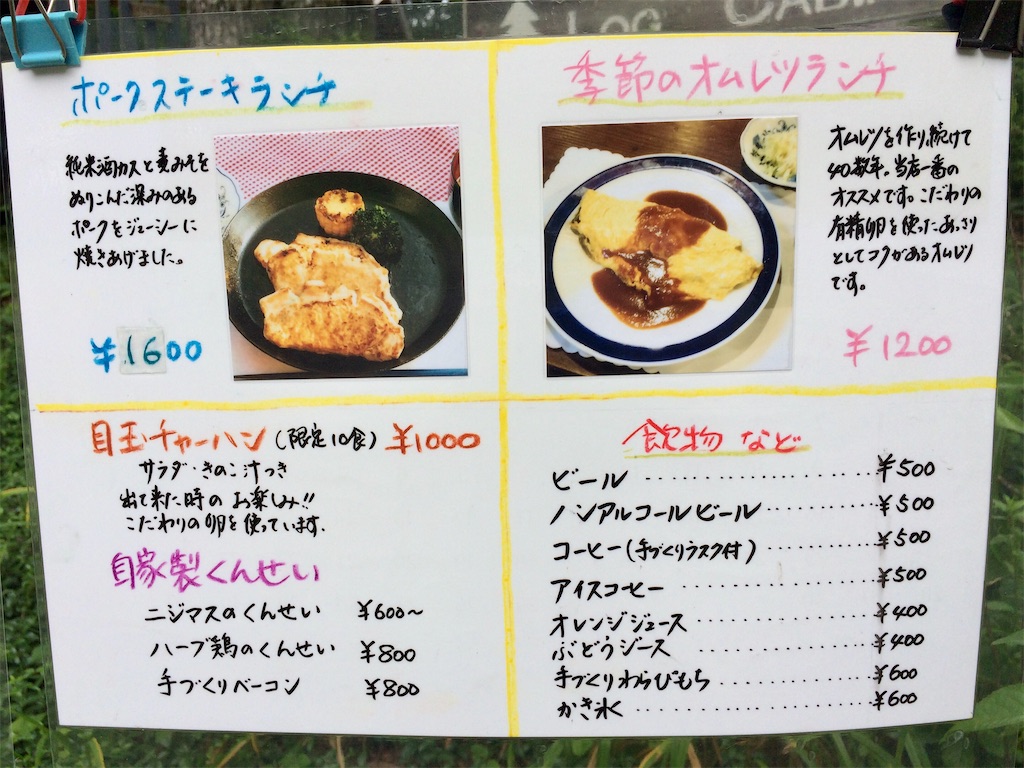 LOG CABIN
ポークステーキランチ
純米酒カスと麦みそを
ぬりこんだ深みのある
ポークをジューシーに
焼きあげました。
¥1600
季節のオムレツランチ
オムレツを作り続けて
40数年。当店一番の
オススメです。こだわりの
有精卵を使ったあっさり
としてコクがあるオムレツ
です。
¥1200
目玉チャーハン(限定10食) ¥1000
サラダ・きのこ汁つき
出て来た時のお楽しみ!!
こだわりの卵を使っています.
自家製くんせい
ニジマスのくんせい ¥600〜
ハーブ鶏のくんせい ¥800
手づくりベーコン ¥800
飲物など
ビール ・・・・・・・・・・・・・・・・ ¥500
ノンアルコールビール ・・・・・・・・・ ¥500
コーヒー(手づくりラスク付) ・・・・・・・・・ ¥500
アイスコーヒー ・・・・・・・・・・・・・ ¥500
オレンジジュース ・・・・・・・・・・・・ ¥400
ぶどうジース ・・・・・・・・・・・・ ¥400
手づくりわらびもち ・・・・・・・・・・・ ¥600
かき氷 ・・・・・・・・・・・・・・・・・ ¥600